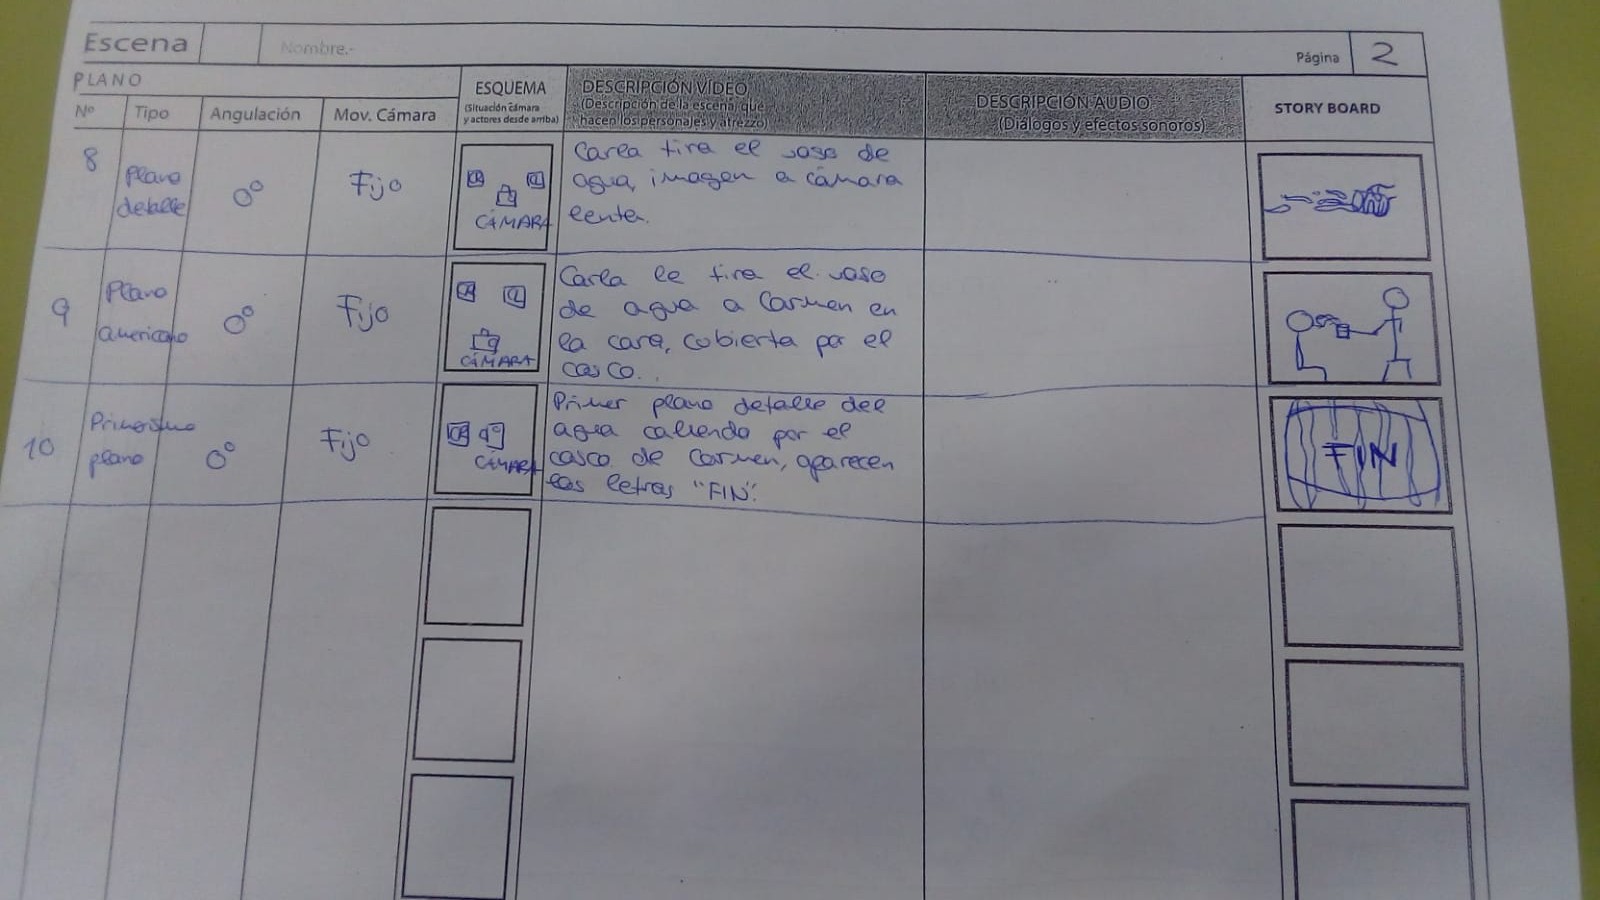 Escena
Nombre.-
Página 2
PLANO
Nº Tipo Angulación Mov. Cámara
ESQUEMA
(Situación cámara
y actores desde arriba)
DESCRIPCIÓN VÍDEO
(Descripción de la escena, que
hacen los personajes y atrezzo)
DESCRIPCIÓN AUDIO
(Diálogos y efectos sonoros)
STORY BOARD
8
Plano
detalle
0º
Fijo
CÁMARA
Carla tira el vaso de
agua, imagen a cámara
lenta.
9
Plano
americano
0º
Fijo
CÁMARA
Carla le tira el vaso
de agua a Carmen en
la cara, cubierta por el
casco.
10
Primerísimo
plano
0º
Fijo
CÁMARA
Primer plano detalle del
agua callendo por el
casco de Carmen, aparecen
las letras "FIN".
FIN